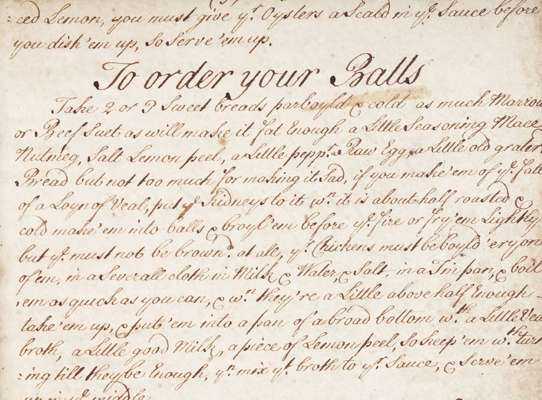 :ced Lemon, you must give yr. Oysters a Scald in ye. Sauce before
you dish 'em up, So Serve 'em up.
To order your Balls
Take 2 or 3 Sweet breads parboyld & cold as much Marrow
or Beef Suet as will make it fat Enough a Little Seasoning Mace
Nutmeg, Salt Lemon peel, a Little peppr. a Raw Egg, a Little old grated
Bread but not too much for making it Sad, if you make 'em of ye. fatt
of a Loyn of Veal, put ye. Kidneys to it wn. it is about half roasted &
cold make 'em into balls & broyl 'em before ye. fire or fry 'em Lightly
but ye. must not be brown'd. at all, ye. Chickens must be boyld 'ery one
of 'em, in a Severall cloth in Milk & Water, & Salt, in a Tin pan, & boil
'em as quick as you can, & wn. they're a Little above half Enough
take 'em up, & put 'em into a pan of a broad bottom wth. a Little Veal
broth, a Little good Milk, a piece of Lemon peel, So keep 'em wth. turn
:ing till they be Enough, yn. mix ye. broth to ye. Sauce, & Serve 'em
up in ye. middle